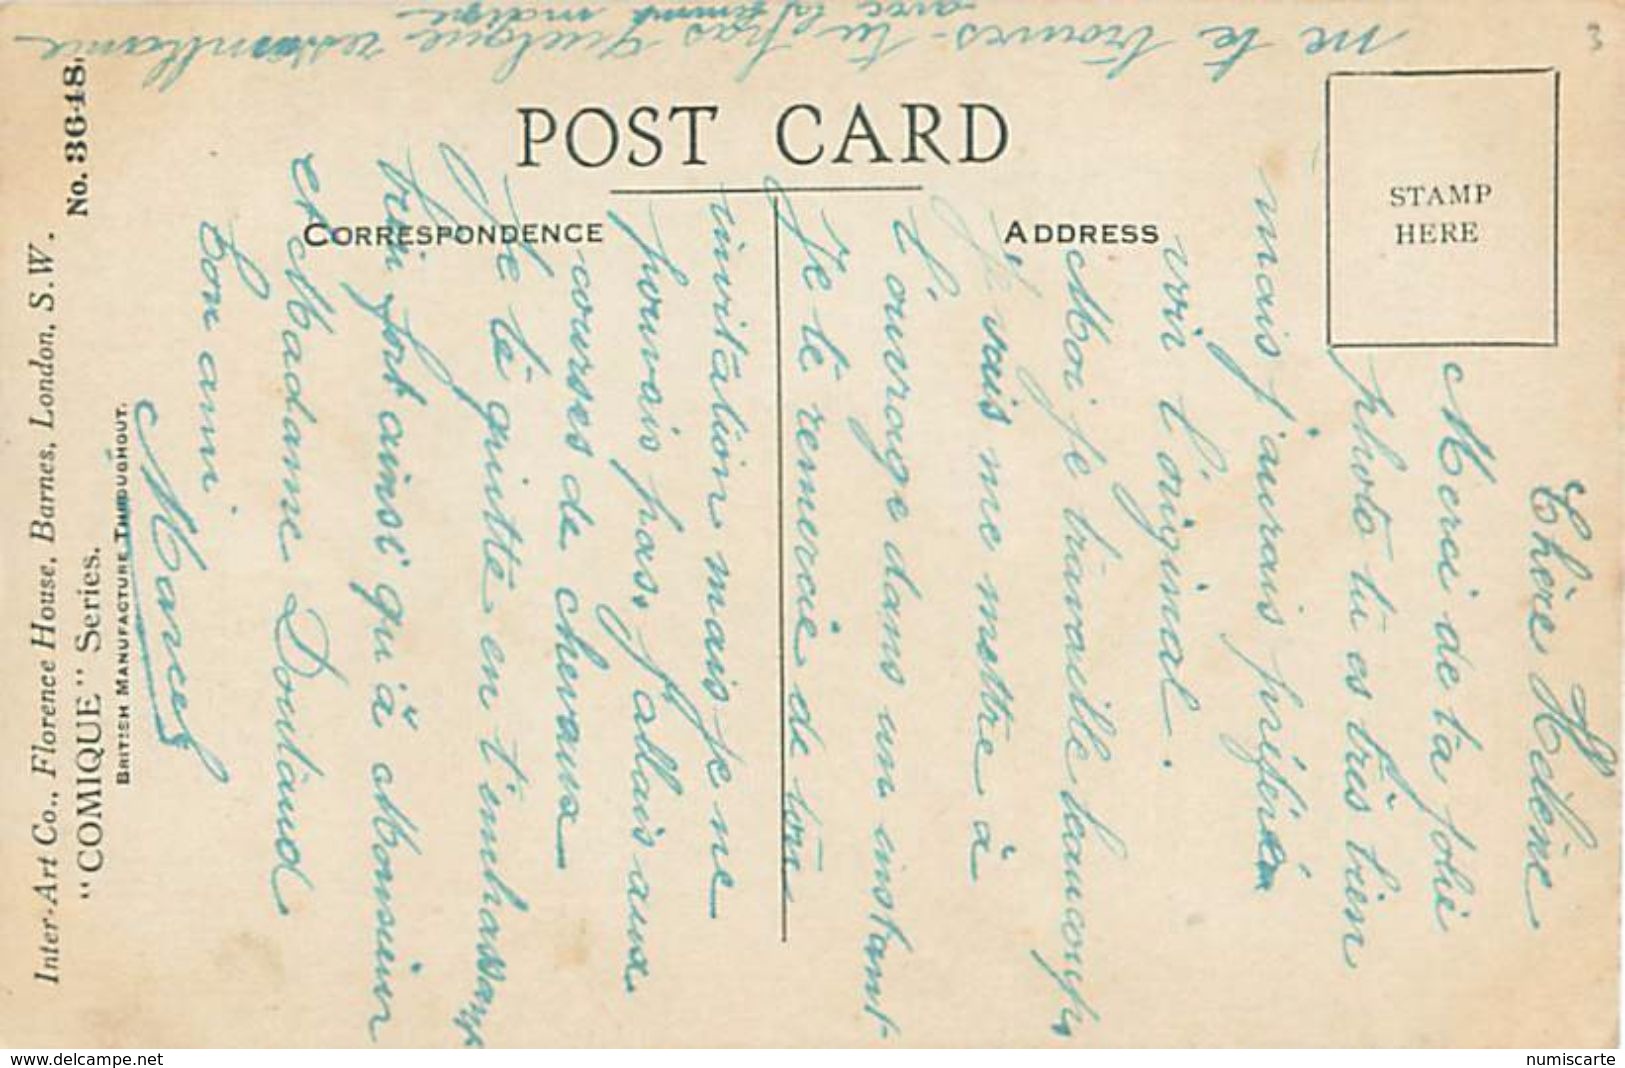 me te trouves-tu pas quelque ressemblance
avec la femme indigne
3
POST CARD
CORRESPONDENCE
ADDRESS
STAMP
HERE
Inter-Art Co., Florence House, Barnes, London, S.W.
"COMIQUE" Series.
No. 3648.
BRITISH MANUFACTURE THROUGHOUT.
Chère Hélène
Merci de ta jolie
photo tu es très bien
mais j'aurais préféré
voir l'original.
Moi je travaille beaucoup
Je vais me mettre à
l'ouvrage dans un instant
Je te remercie de ton
invitation mais je ne
pouvais pas, j'allais aux
courses de chevaux
Je te quitte en t'embrassant
bien fort ainsi qu'à Monsieur
et Madame
Ton ami
Marcel
www.delcampe.net
numiscarte